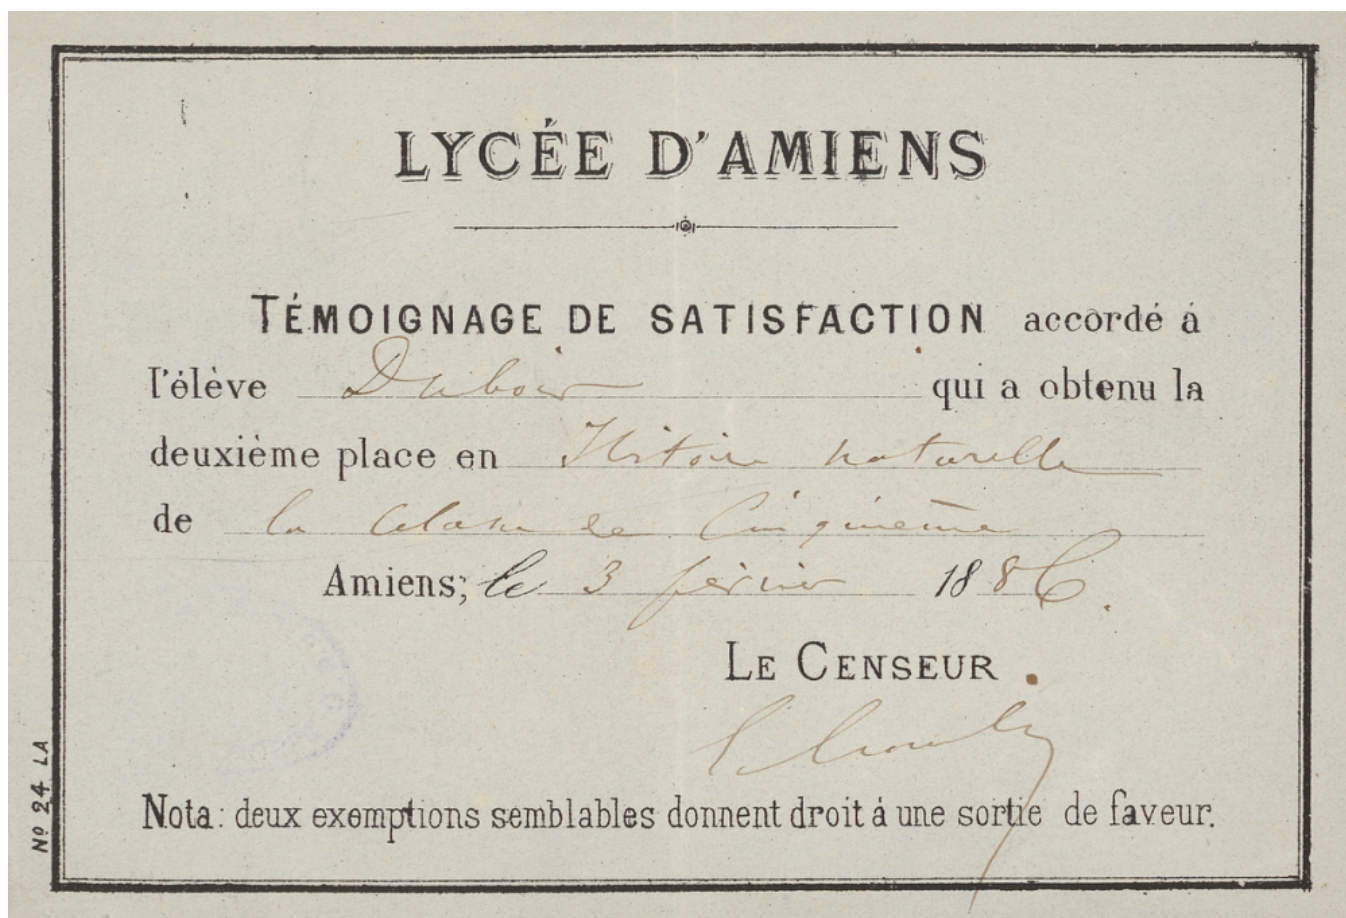 LYCÉE D'AMIENS
TÉMOIGNAGE DE SATISFACTION accordé à
l'élève Dubois qui a obtenu la
deuxième place en Histoire naturelle
de la Classe de Cinquième
Amiens; le 3 février 1886.
LE CENSEUR.
Nota: deux exemptions semblables donnent droit à une sortie de faveur.
Nº 24 LA